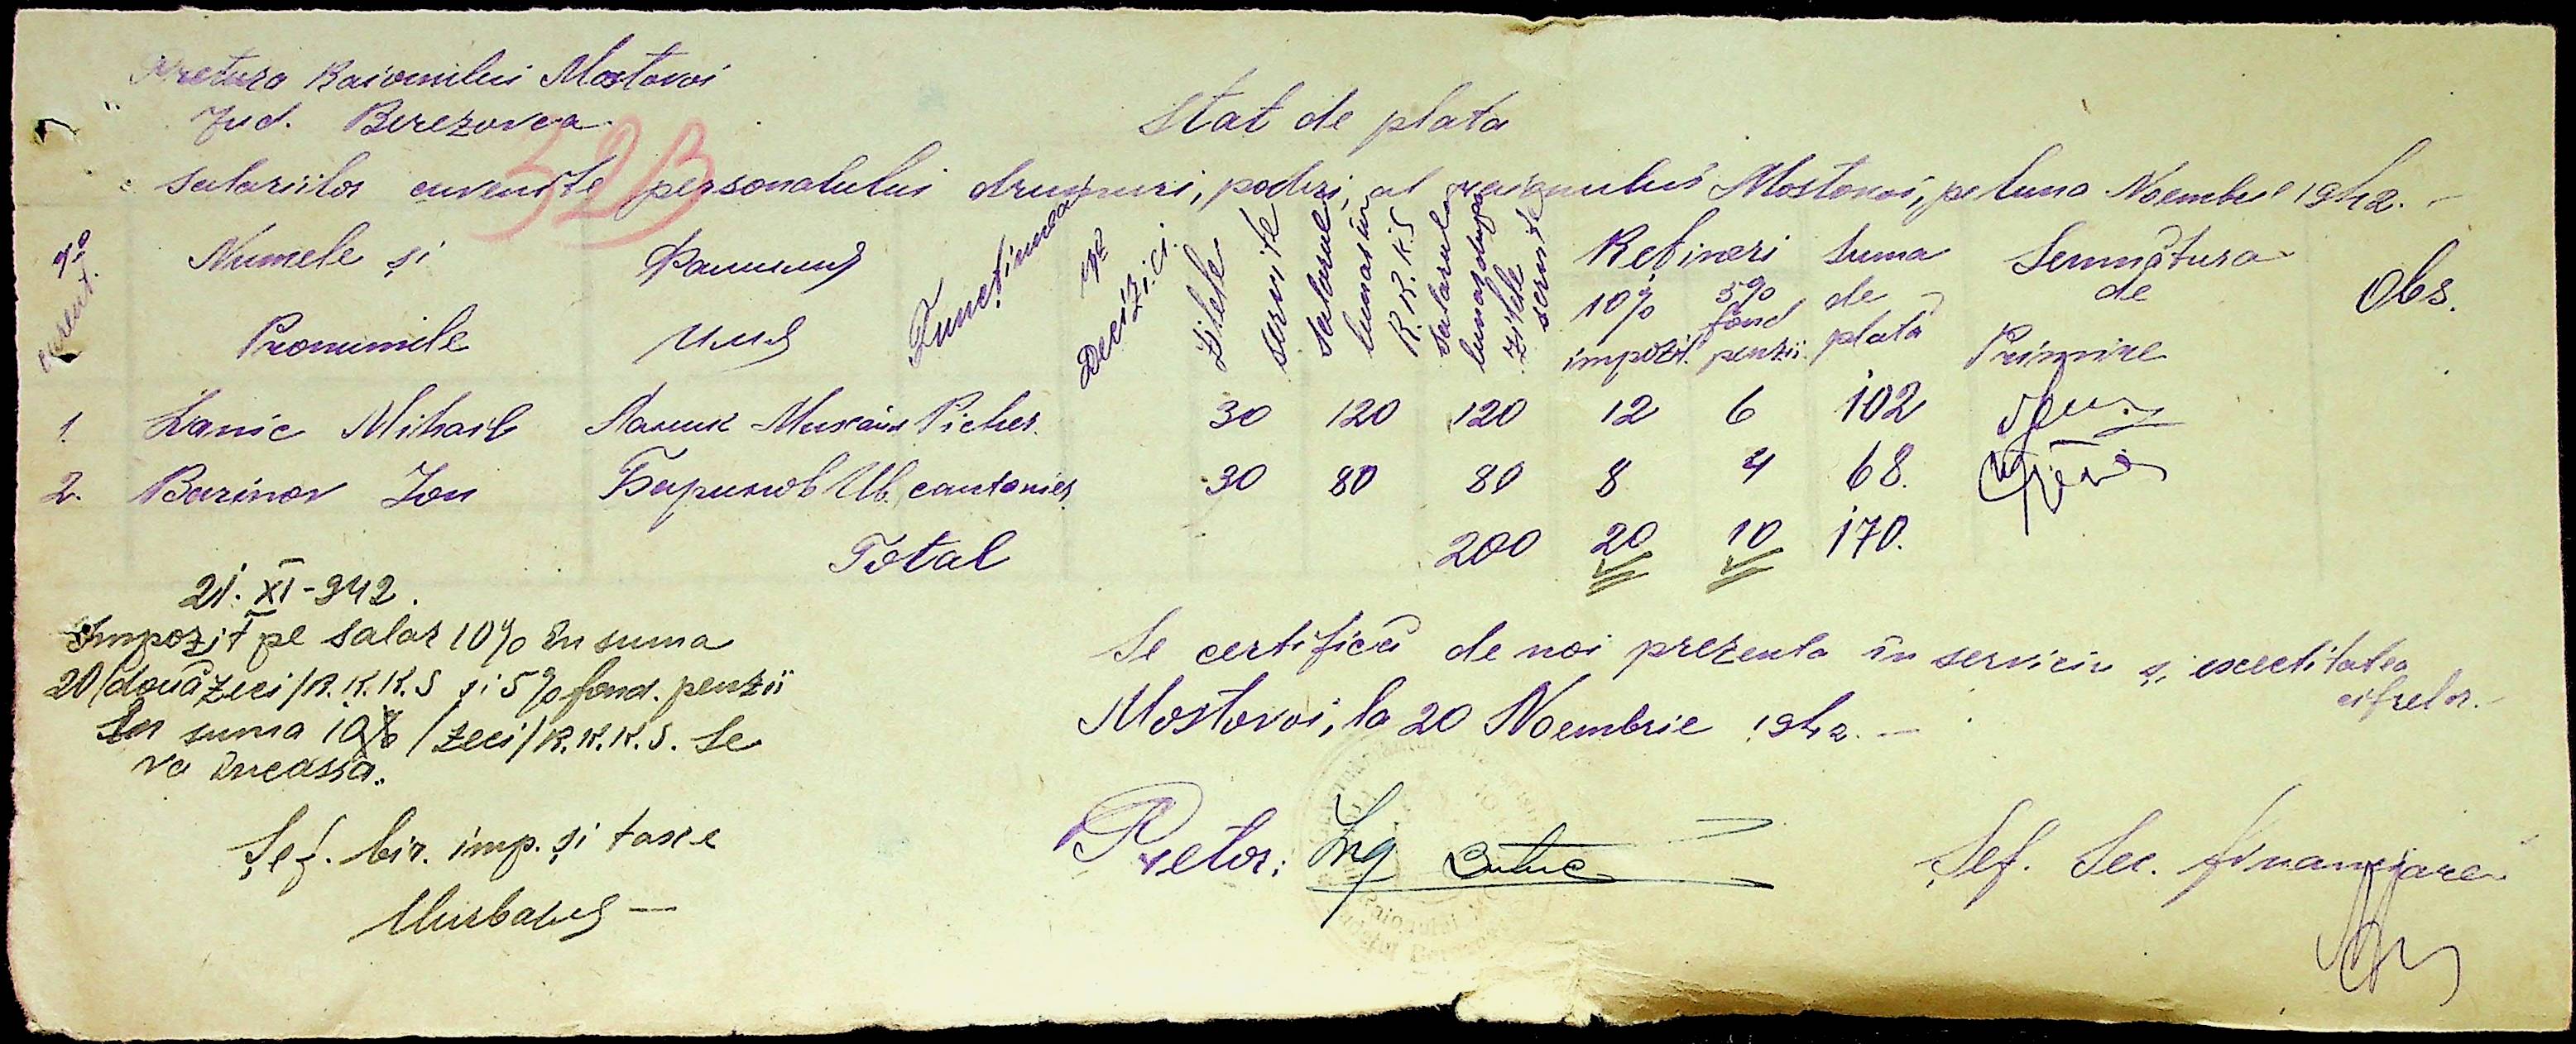 Pretura Raionului Mostovoi
Jud. Berezovca
Stat de plata
328
salariilor cuvenite personalului drumuri, poduri, al raionului Mostovoi, pe luna Noembrie 1942. -
No curent.
Numele și
Pronumile
Фамилия
Имя
Funcțiunea
No Decizici.
Zilele servite
Salarul lunar în R.K.K.S
Salarul lunar dupa zilele servite
Rețineri
10% impozit.
5% fond penzii.
Suma de plată
Semnătura de Primire
Obs.
1. Lanic Mihail Ланик Михаил Picher. 30 120 120 12 6 102
2. Barinov Ion Баринов Ив. cantonier 30 80 80 8 4 68.
Total 200 20 10 170.
21. XI - 942.
Impozit pe salar 10% în suma
20/douăzeci/R.K.K.S și 5% fond. penzii
în suma 10 /zeci/R.K.K.S. Se
va încassa.
Se certifică de noi prezenta în serviciu și
cifrelor. -
Mostovoi, la 20 Noembrie 1942. -
Șef. bir. imp. și taxe
Pretor: Ing
Șef. Sec. financiare
Raionului